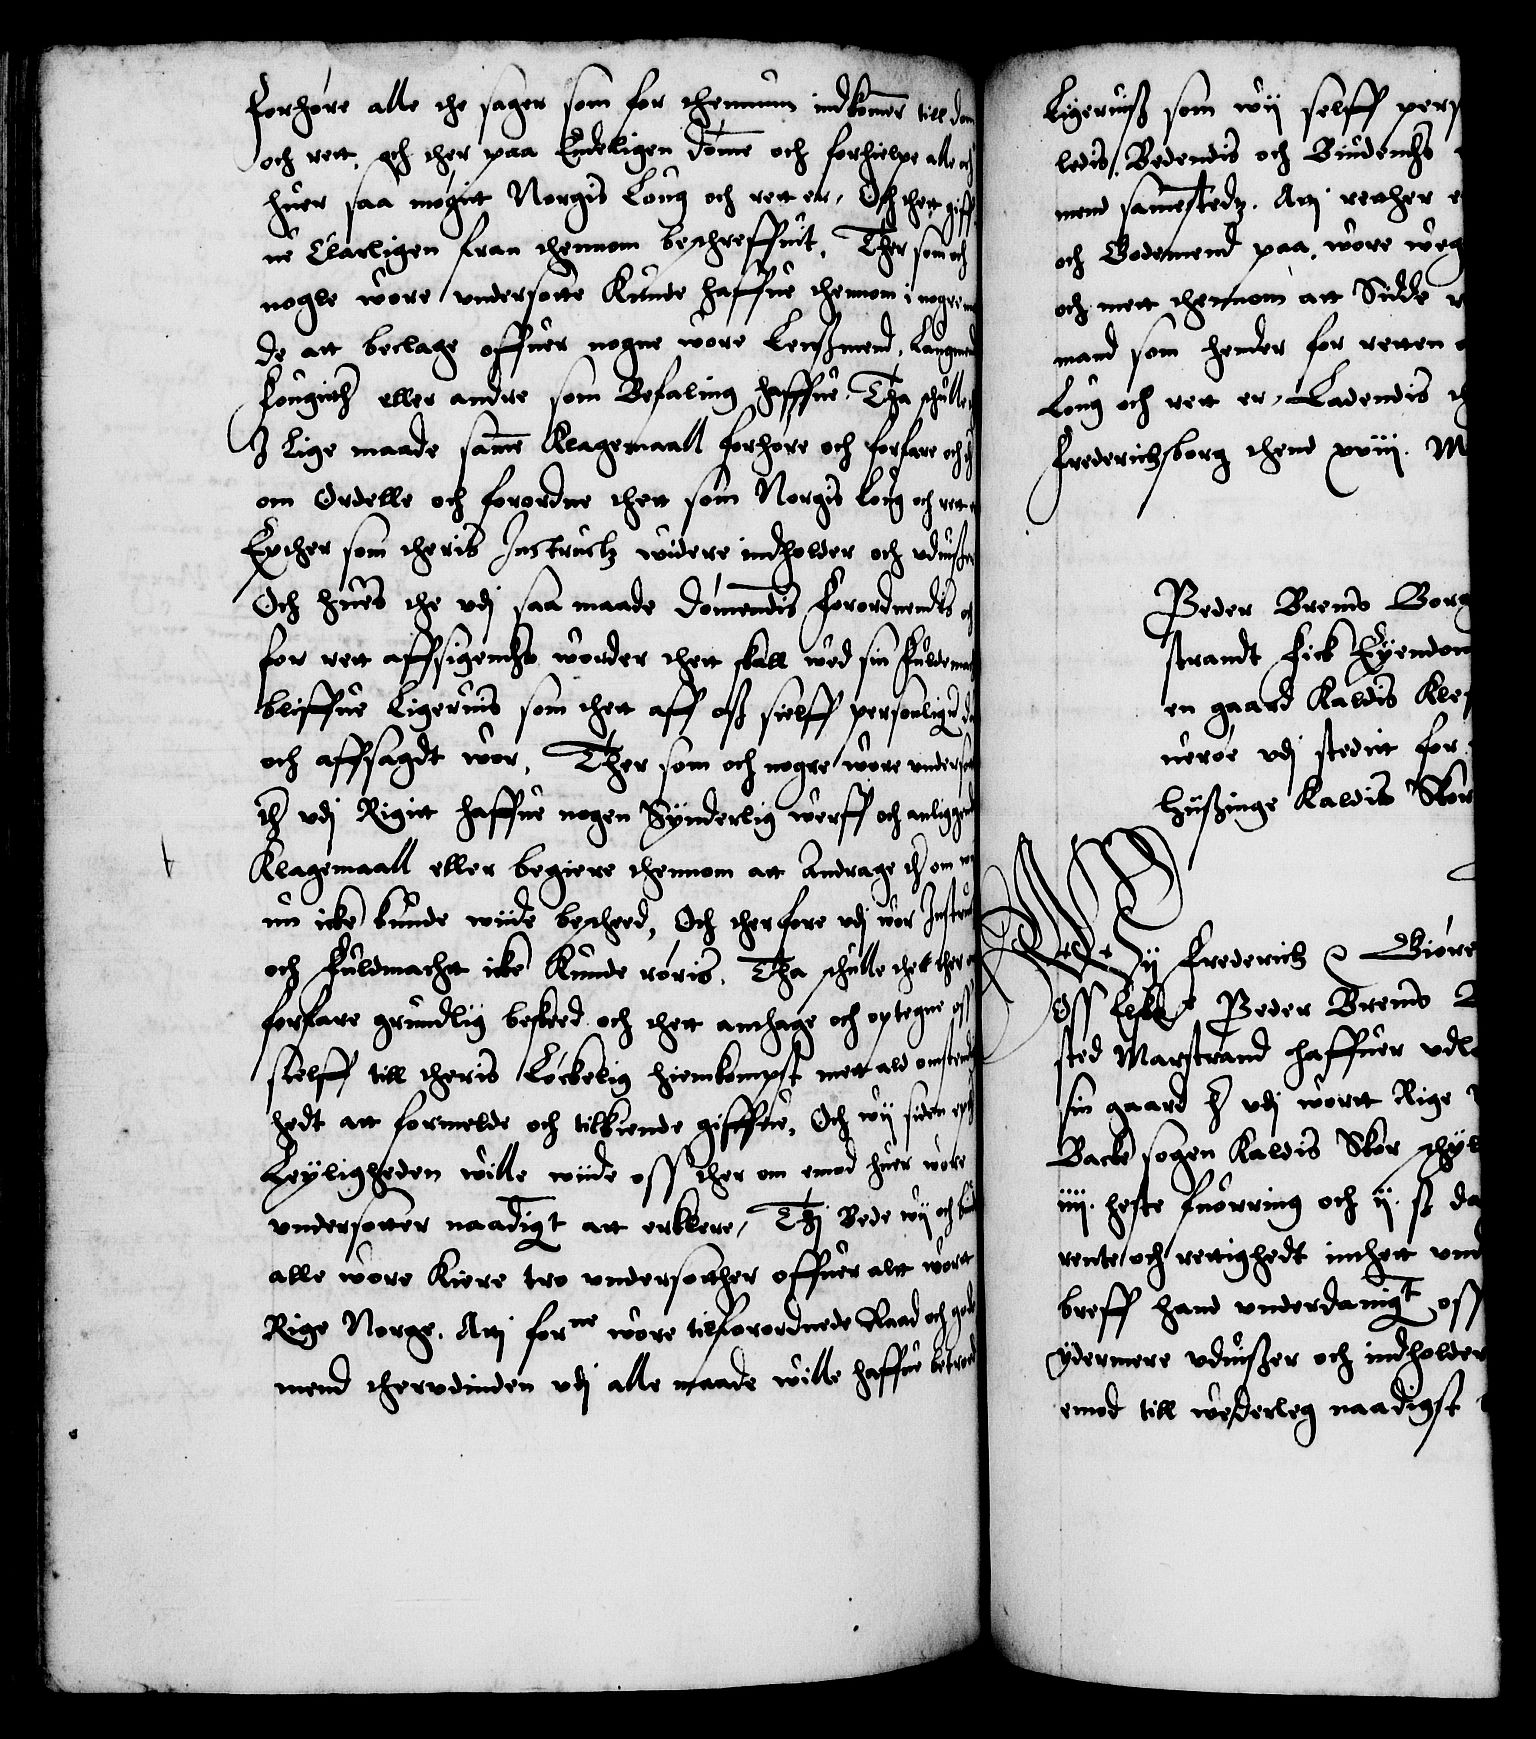 forhøre alle the sager som for thennum indkomme till dom
och rett, och ther paa Endeligen dømme och forhielpe alle och
huer saa møgitt Norgis Loug och rett er, Och thett giff
ue Clarligen fran thennom beschreffuit, Ther som och
nogle wore vndersotte Kunde haffue thennom i nogre maa
de att beclage offuer nogne wore Lenßmend, Laugmend
fougither eller andre som Befaling haffue. Tha schulle
I Lige maade samme Klagemaall forhøre och forfare och th
om Ordelle och forordne thett som Norgis Loug och rett er
Epther som theris Instructz widere indholder och vduißer
Och hues the vdj saa maade dømmendis forordnendis och
for rett affsigendis worder thett skall wed sin fuldemact
bliffue Ligeruis som thett aff oß sielff personligen
och affsagdt wor, Ther som och nogre wore vndersotte
ther vdj Rigitt haffue nogen Synderlig werff och anliggend
Klagemaall eller begiere thennom att Andrage ther om
nu icke kunde wide bescheed, Och therfore vdj wor Instruct
och fuldmachtt icke Kunde røris. Tha schulle thett ther
forfare grundlig beskeed och thett anthage och optegne oss
sielff till theris Løckelig hiemkompst mett ald omstend
hedt att formelde och tilkiende giffue, Och wij siden epther
Leyligheden wille wiide oss ther om emod huer wore
vndersotter naadigt att erklere, Thj Bede wij och biude
alle wore Kiere tro vndersotther offuer altt wortt
Rige Norge. Atj forne wore tilforordnede Raad och gode
mend thervdinden vdj alle maade wille haffue betroed
Ligeruiß som wij selff pers
ledis, Bedendis och Biudendis
mend samestedz. Atj retther e
och Bodemend paa wore weg
och mett thennom att Sidde r
mand som hender for retten
Loug och rett er, Ladendis
Frederichsborg thend xviij. M
Peder Brems Borg
strandt fick Eyendom
en gaard Kaldis Kle
nerøe vdj stedit for
husinge Kaldis Skor
Wij Frederich Giøre
Oss Elskl Peder Brems
sted Marstrand haffuer vdl
sin gaard vdj wortt Rige
Backe sogen Kaldis Skor schyl
iiij. heste fuorring och ij. sk da
rente och rettighedt inthett vnd
breff hand vnderdanigt oss
ydermere vduißer och indholder
emod till wederleg naadigst